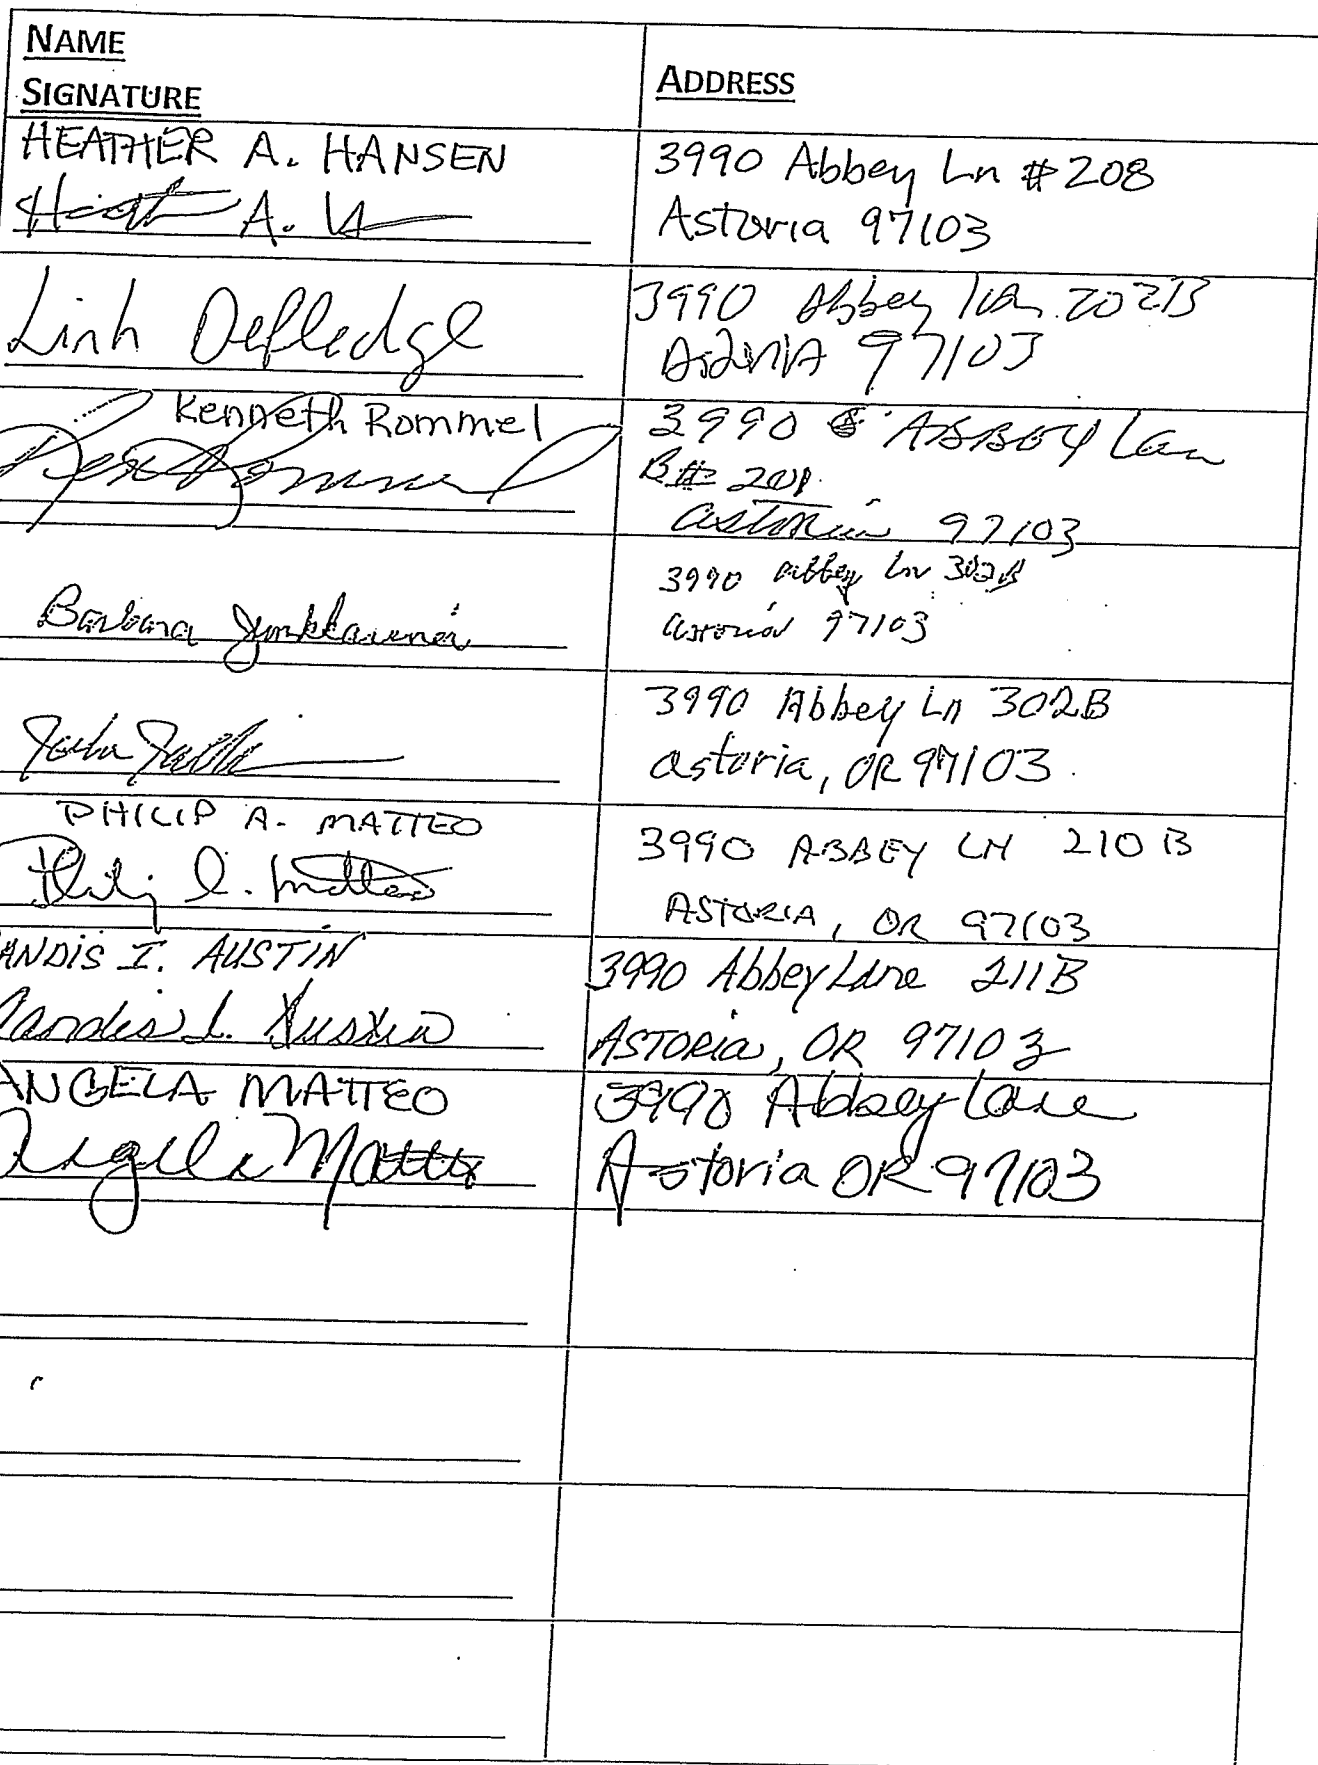 NAME
SIGNATURE
ADDRESS
HEATHER A. HANSEN
A.
3990 Abbey Ln #208
Astoria 97103
Linh
3990 Abbey 202B
97103
Kenneth Rommel
Ken Rommel
3990 ABBEY Lan
B# 201
astoria 97103
Barbara
3990 abbey Ln 302B
astoria 97103
3990 Abbey Ln 302B
astoria, OR 97103
PHILIP A. MATTEO
Philip A. Matteo
3990 ABBEY LN 210 B
ASTORIA, OR 97103
ANDIS I. AUSTIN
Candis I. Austin
3990 Abbey Lane 211B
ASTORIA, OR 97103
ANGELA MATTEO
Angela Matteo
3990 Abbey Lane
Astoria OR 97103